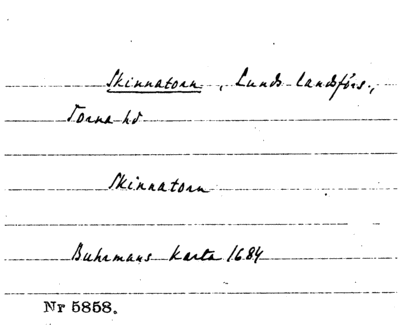 Skinnatorn, Lunds landsförs.,
Torna hd
Skinnatorn
Buhrmans karta 1684
Nr 5858.